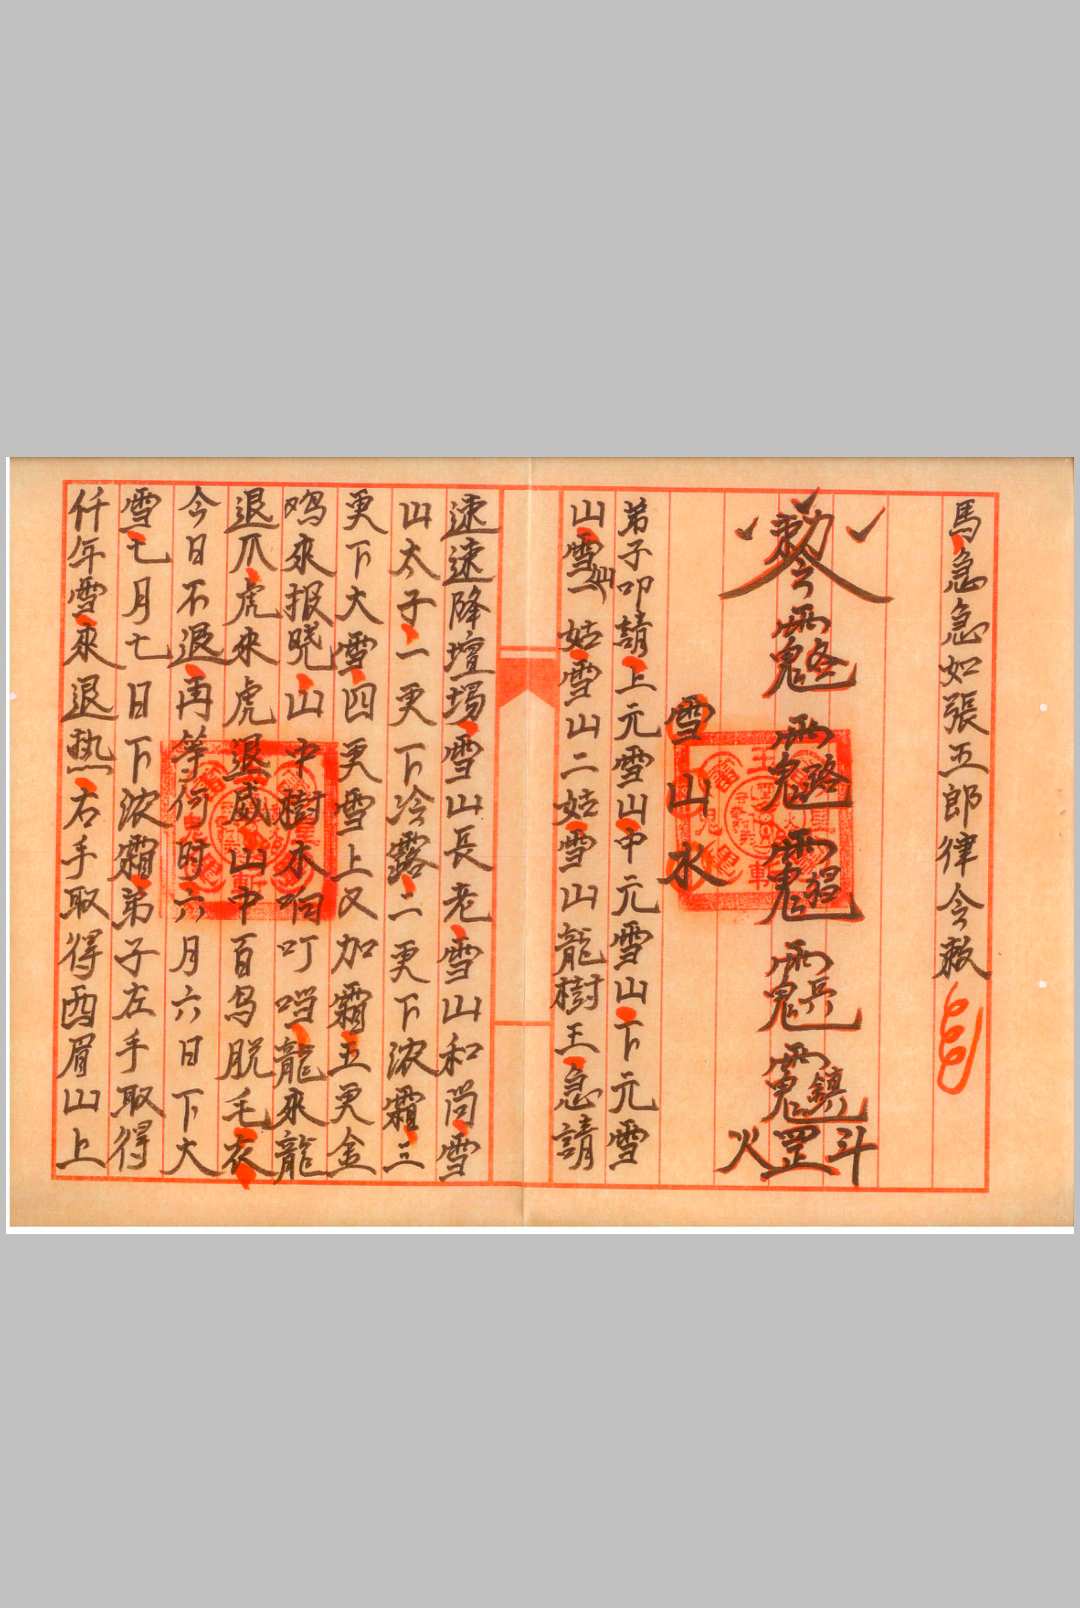 馬急急如張五郎律令敕
勅令
火罡斗
雪山水
弟子叩請上元雪山中元雪山下元雪
山雪仙一姑雪山二姑雪山龍樹王急請
速速降壇場雪山長老雪山和尚雪
山太子一更下冷露二更下浓霜三
更下大雪四更雪上又加霜五更金
鸡來报曉山中樹木响叮噹龍來龍
退爪虎來虎退威山中百鸟脱毛衣
今日不退再等何时六月六日下大
雪七月七日下浓霜弟子左手取得
仟年雪來退热右手取得酉眉山上